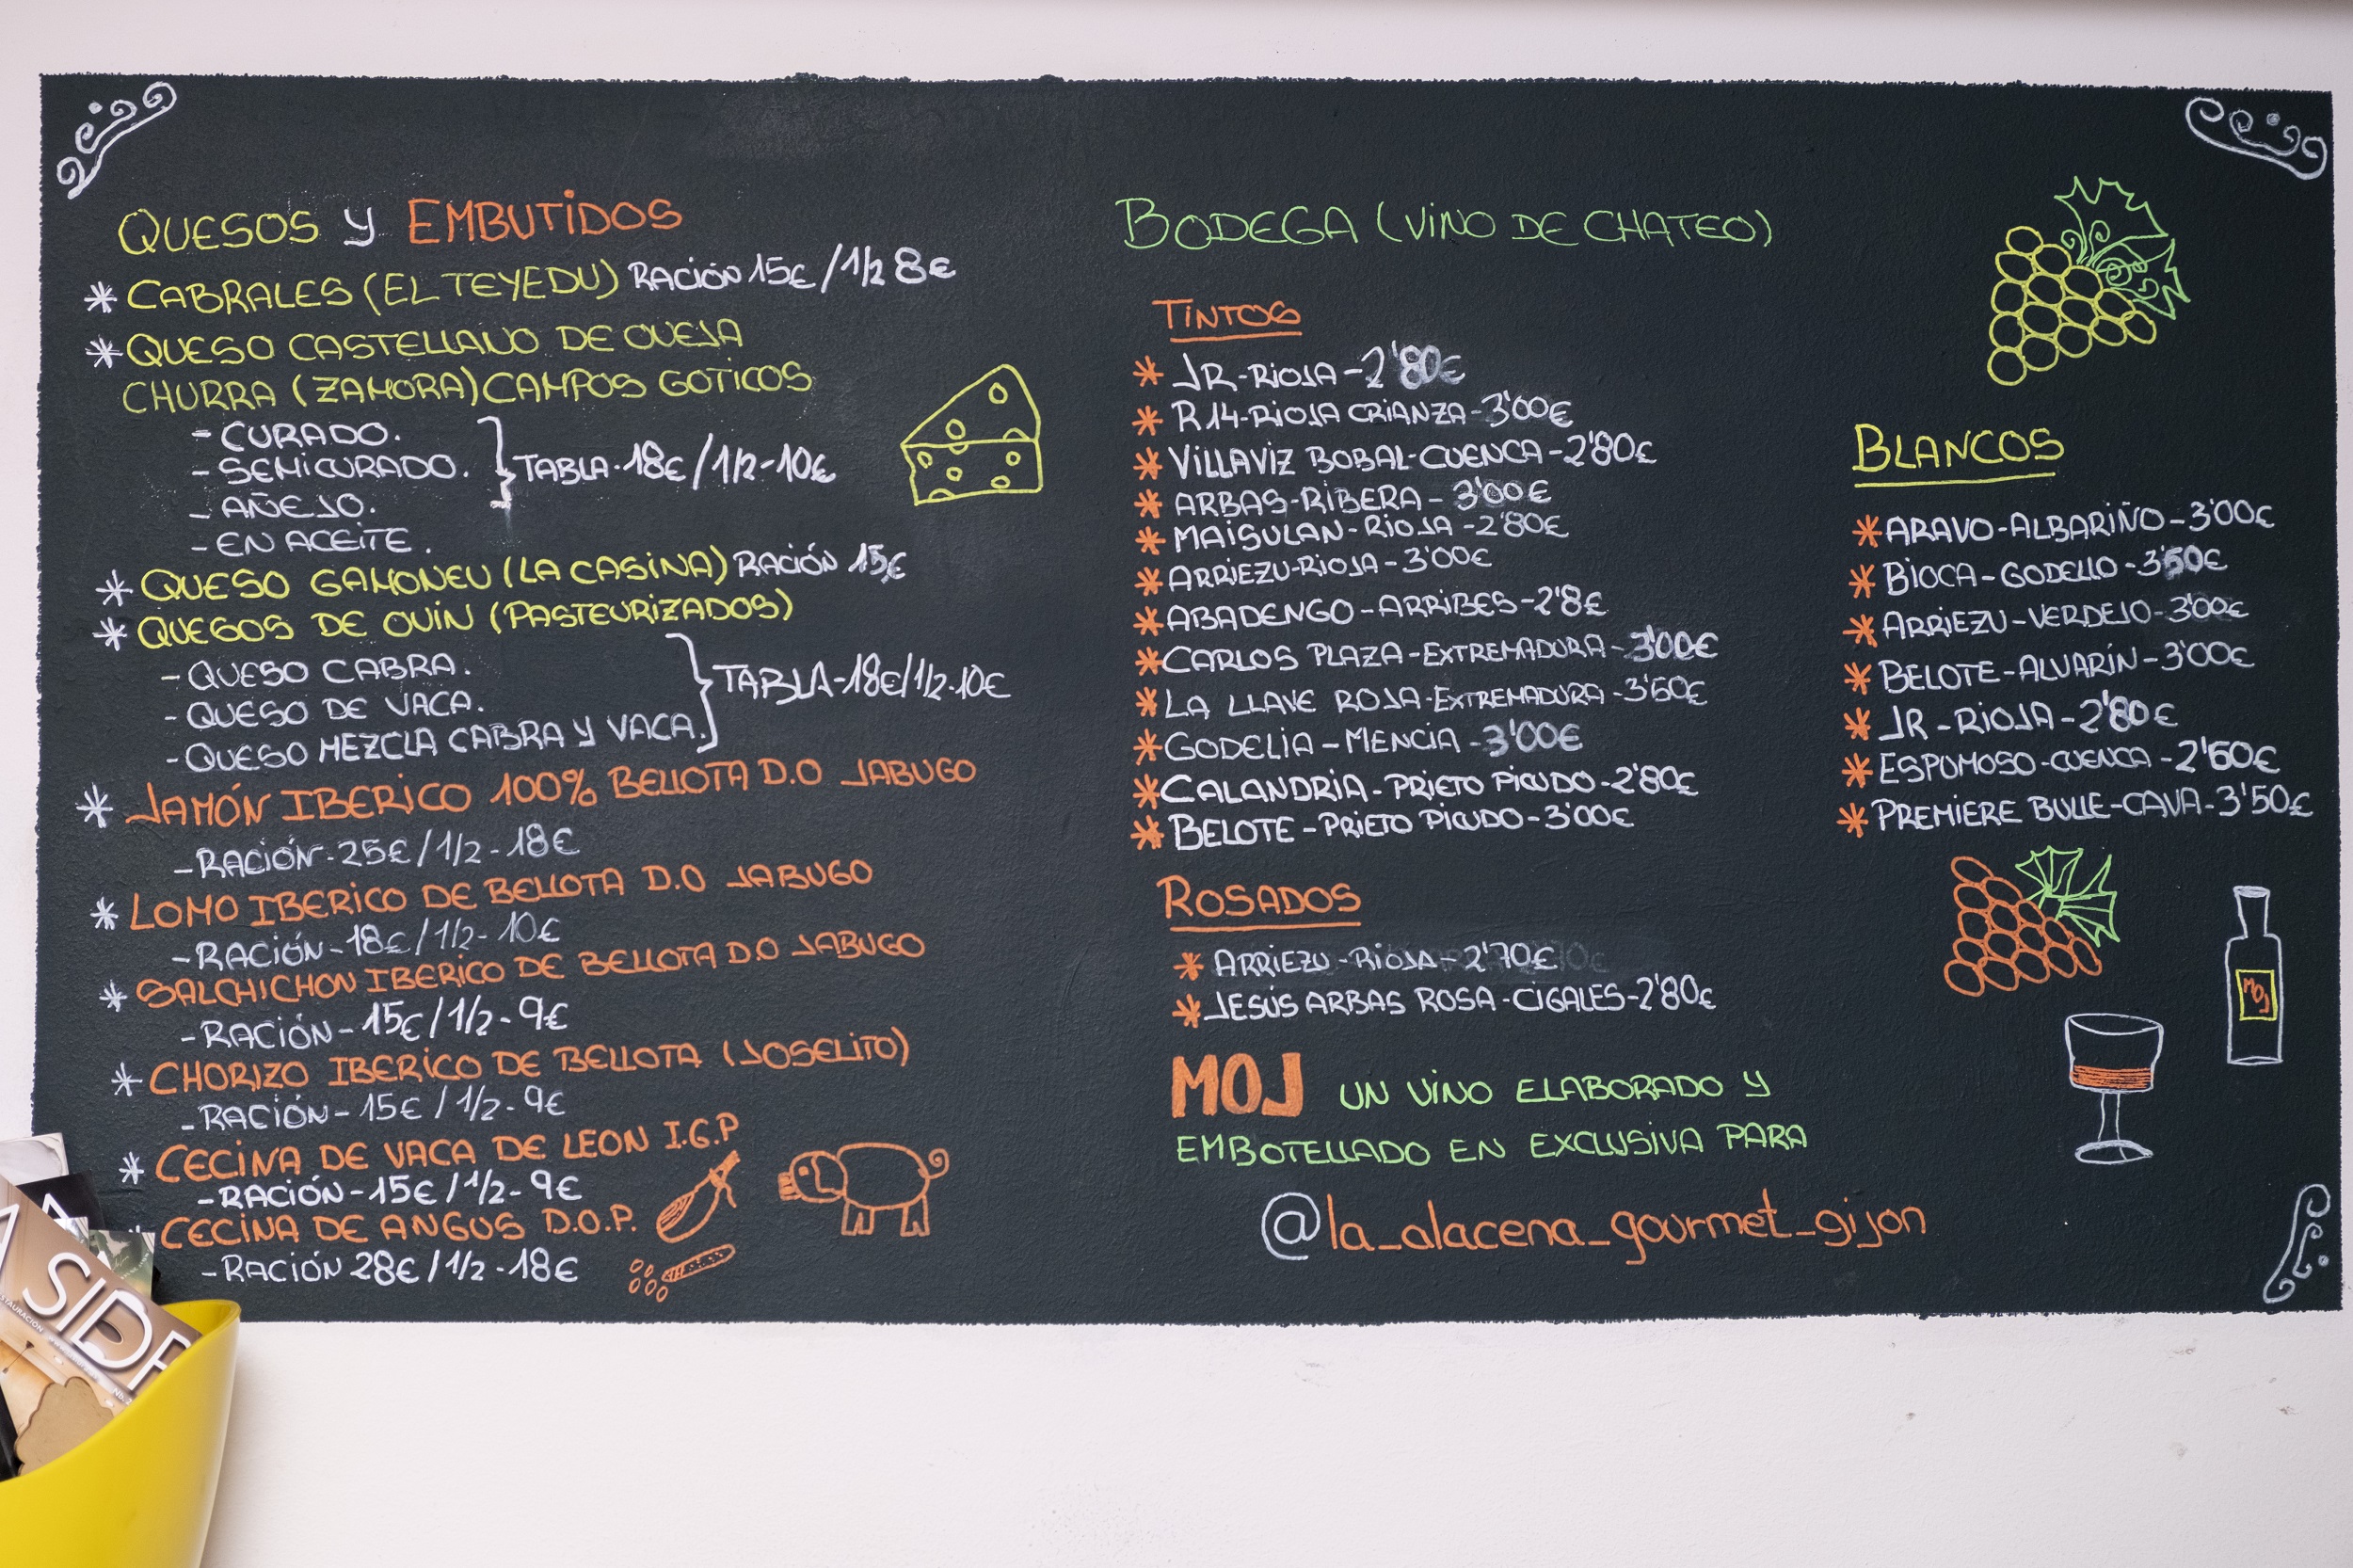 QUESOS y EMBUTIDOS
* CABRALES (EL TEYEDU) RACIÓN 15€ / 1/2 8€
* QUESO CASTELLANO DE OVEJA
CHURRA (ZAMORA) CAMPOS GOTICOS
- CURADO.
- SEMICURADO.
TABLA-18€ / 1/2-10€
- AÑEJO.
- EN ACEITE.
* QUESO GAMONEU (LA CASINA) RACIÓN 15€
* QUESOS DE OVIN (PASTEURIZADOS)
- QUESO CABRA.
- QUESO DE VACA.
TABLA-18€/1/2-10€
- QUESO MEZCLA CABRA Y VACA.
* JAMÓN IBERICO 100% BELLOTA D.O JABUGO
- RACIÓN-25€ / 1/2-18€
* LOMO IBERICO DE BELLOTA D.O JABUGO
- RACIÓN-18€ / 1/2-10€
* SALCHICHON IBERICO DE BELLOTA D.O JABUGO
- RACIÓN-15€ / 1/2-9€
* CHORIZO IBERICO DE BELLOTA (JOSELITO)
- RACIÓN-15€ / 1/2-9€
* CECINA DE VACA DE LEON I.G.P
- RACIÓN-15€ / 1/2-9€
CECINA DE ANGUS D.O.P.
- RACIÓN 28€ / 1/2-18€
BODEGA (VINO DE CHATEO)
TINTOS
* JR-RIOJA-2'80€
* R14-RIOJA CRIANZA-3'00€
* VILLAVIZ BOBAL-CUENCA-2'80€
* ARBAS-RIBERA-3'00€
* MAISULAN-RIOJA-2'80€
* ARRIEZU-RIOJA-3'00€
* ABADENGO-ARRIBES-2'8€
* CARLOS PLAZA-EXTREMADURA-3'00€
* LA LLAVE ROJA-EXTREMADURA-3'50€
* GODELIA-MENCIA-3'00€
* CALANDRIA-PRIETO PICUDO-2'80€
* BELOTE-PRIETO PICUDO-3'00€
ROSADOS
* ARRIEZU-RIOJA-2'70€
* JESÚS ARBAS ROSA-CIGALES-2'80€
MOJ UN VINO ELABORADO Y
EMBOTELLADO EN EXCLUSIVA PARA
@la_alacena_gourmet_gijon
BLANCOS
* ARAVO-ALBARIÑO-3'00€
* BIOCA-GODELLO-3'50€
* ARRIEZU-VERDEJO-3'00€
* BELOTE-ALVARÍN-3'00€
* JR-RIOJA-2'80€
* ESPUMOSO-CUENCA-2'60€
* PREMIERE BULLE-CAVA-3'50€
MOJ
SIDR